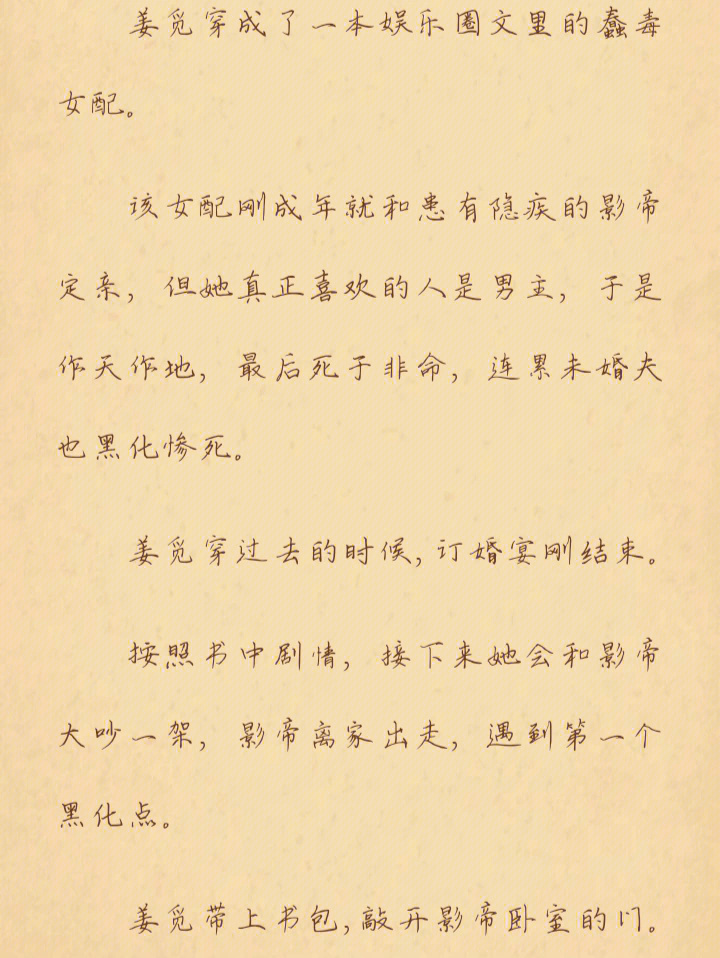 姜觅穿成了一本娱乐圈文里的蠢毒
女配。
该女配刚成年就和患有隐疾的影帝
定亲，但她真正喜欢的人是男主，于是
作天作地，最后死于非命，连累未婚夫
也黑化惨死。
姜觅穿过去的时候，订婚宴刚结束。
按照书中剧情，接下来她会和影帝
大吵一架，影帝离家出走，遇到第一个
黑化点。
姜觅带上书包，敲开影帝卧室的门。